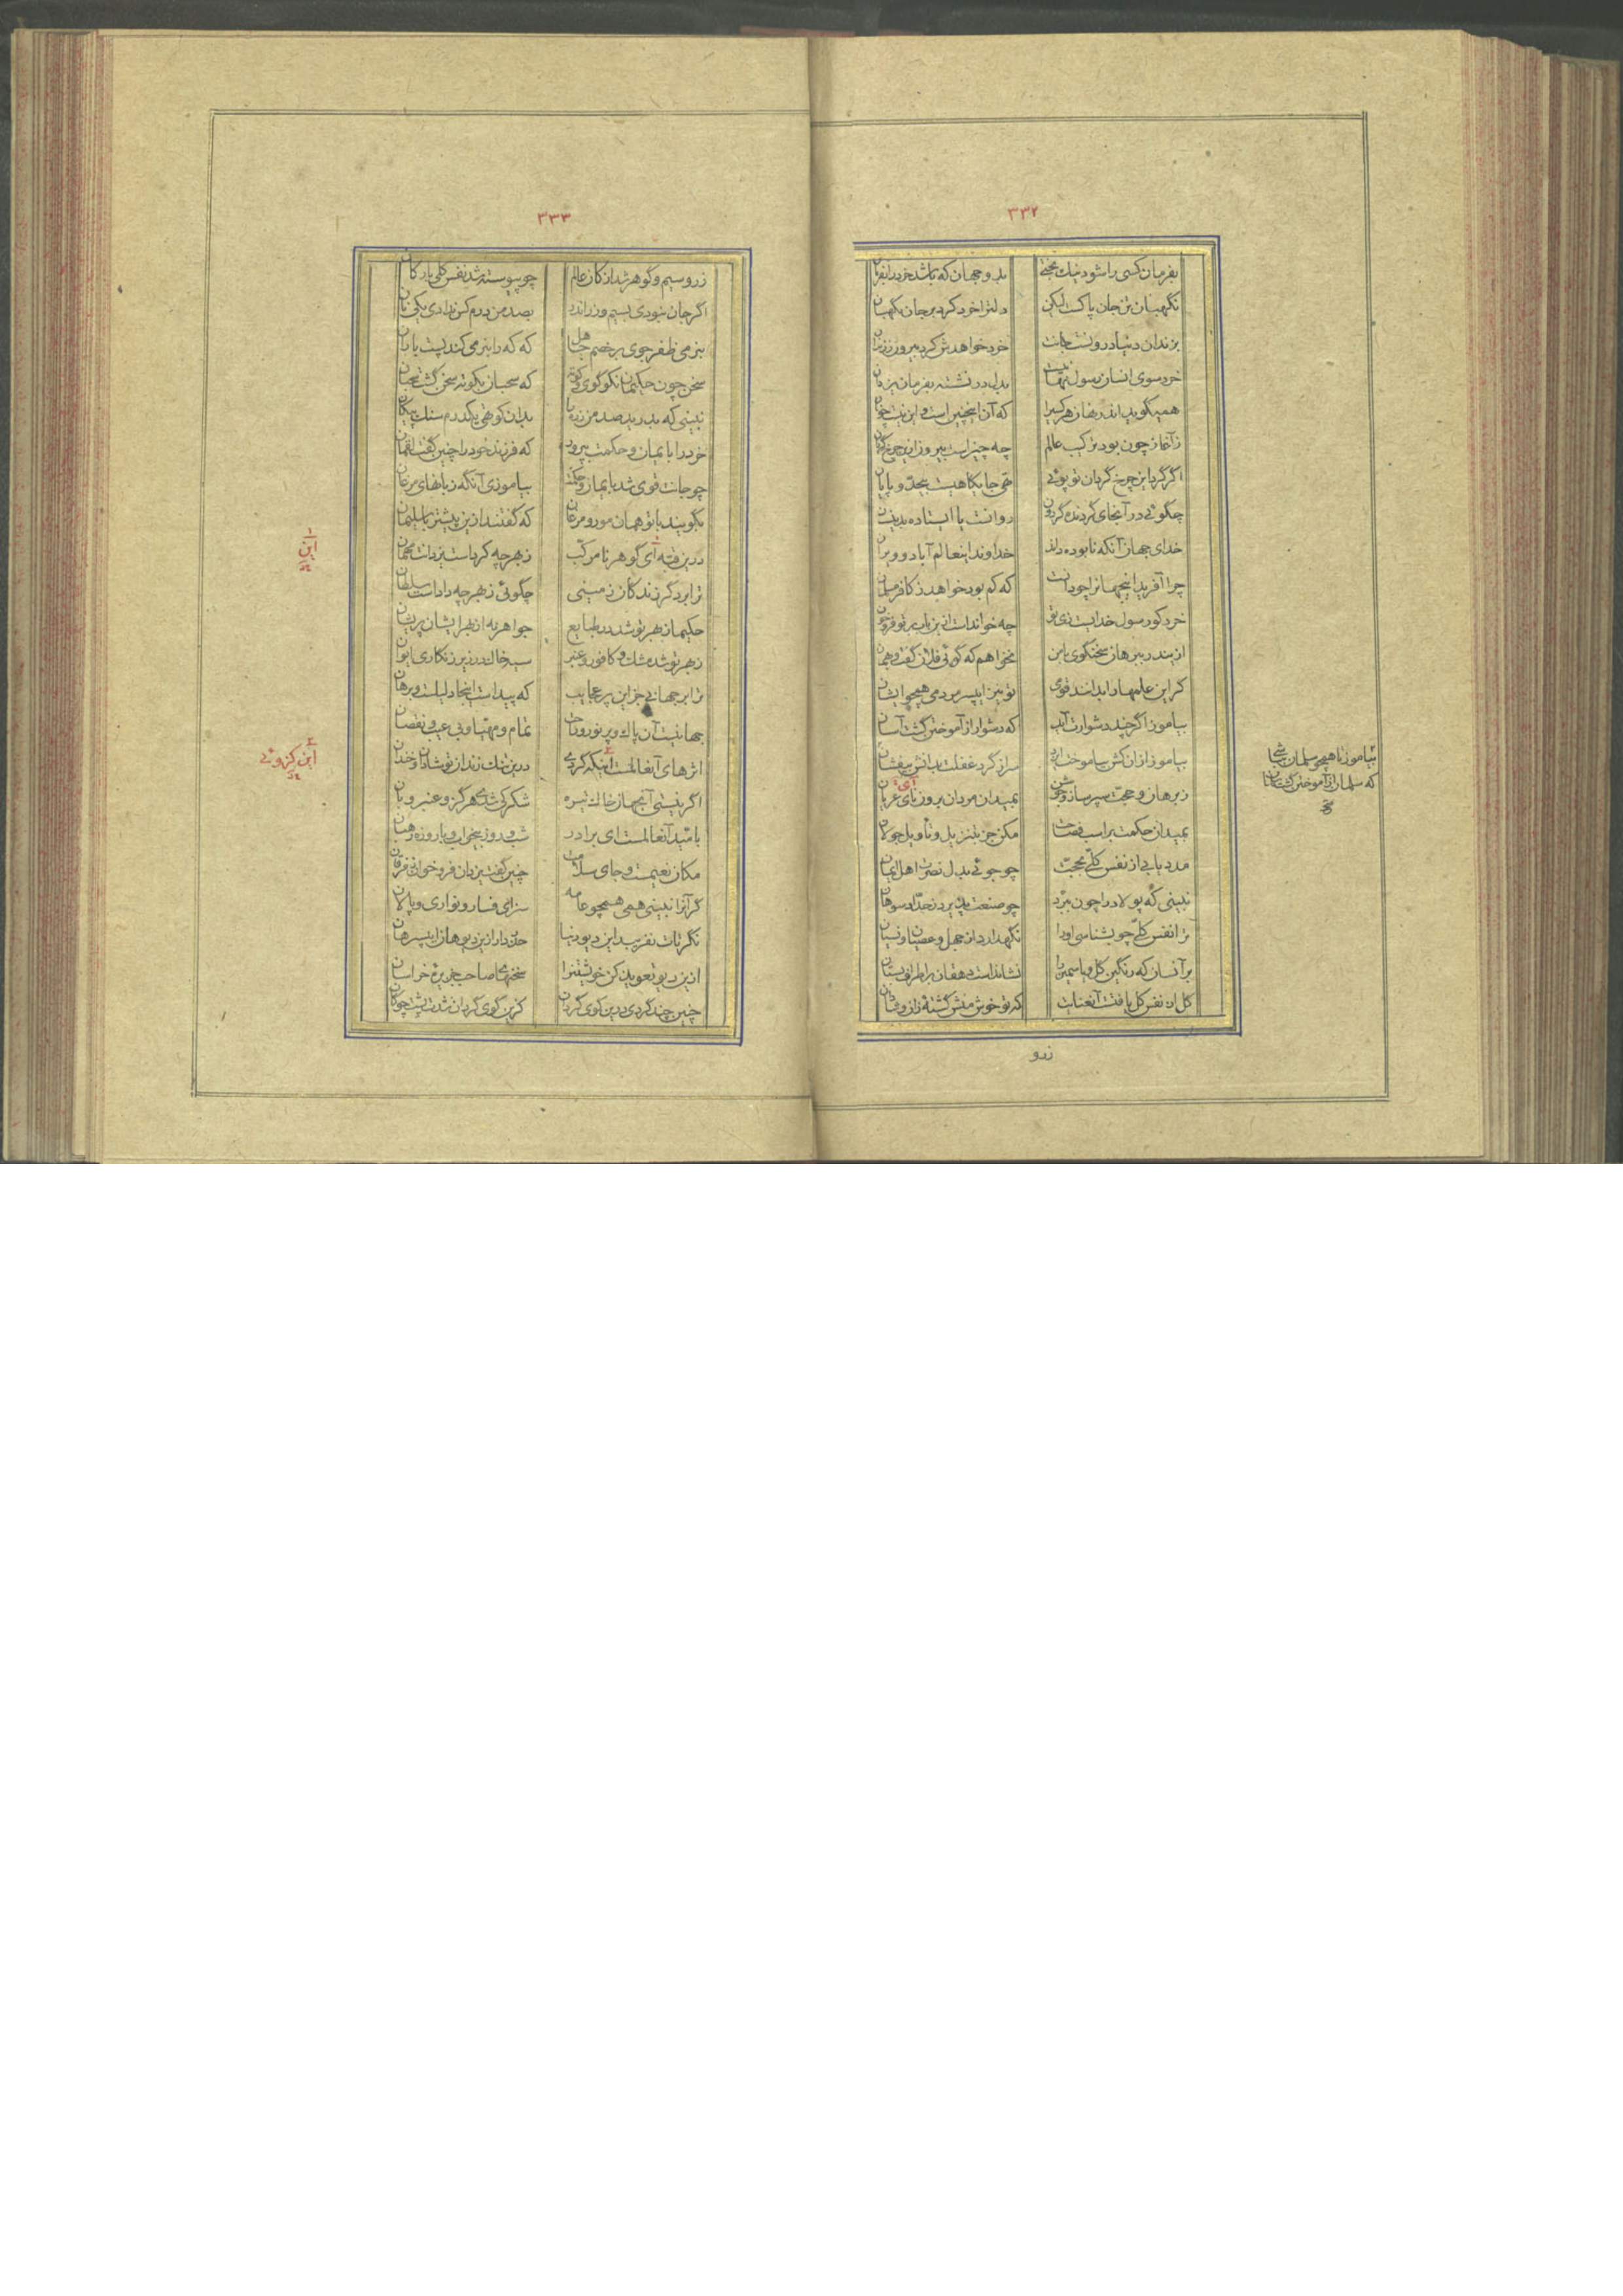 ٣٣٢
بفرمان کسی را شود نیک بختی بدو جهان که باشد خرد را بفرمان
نگهبان تن جان پاکست لیکن دلترا خرد کرد بر جان نگهبان
بزندان دنیا درونست جانت خرد خواهدش کرد بیرون ز زندان
خرد سوی انسان رسول نهانیست بدل در نشسته بفرمان یزدان
همیگوید اندر نهان هر کسیرا که آن اینچنین است و این نیست چونان
ز آغاز چون بود ترکیب عالم چه چیز است بیرون ازین چرخ گردان
اگر گرد این چرخ گردان تو پوئی تهی جایگاهیست بیحدّ و پایان
چگوئی در آنجای گردنده گردون روانست یا ایستاده بدینسان
خدای جهان آنکه نابوده داند خداوند اینعالم آباد و ویران
چرا آفرید اینجهانرا چو دانست که کم بود خواهد ز کافر مسلمان
خرد کو رسول خدایست زی تو چه خوانداست ازین باب بر تو فروخوان
از بند و برهان سخنگوی با من نخواهم که گوئی فلان گفت و بهمان
گر این علمها را بدانند قومی تو نیز ای پسر مردمی همچو ایشان
بیاموز اگر چند دشوارت آید که دشوار از آموختن گشت آسان
بیاموز از آن کش بیاموخت ایزد سر از گرد غفلت بدانش بیفشان
ز برهان و حجت سپر ساز و جوشن بمیدان مردان برون نای عریان
تای
بمیدان حکمت بر اسب فصاحت مکن جز بتنزیل و تأویل جولان
مدد یابی از نفس کلّی بحجّت چو جوئی بدل نصرت اهل ایمان
نبینی که پولاد را چون ببرّد چو صنعت پذیرد ز حدّاد سوهان
ترا نفس کلّی چو بشناسی اورا نگهدارد از جهل و عصیان و نسیان
بر آنسان که رنگین گل و یاسمین را نشانداست دهقان بر اطراف بستان
گل از نفس کل یافتست آنعنایت که تو خوش منش گشته زان و شادان
زرو
بیاموز تا همچو سلمان بباشی
که سلمان از آموختن گشت سلمان
٣٣٣
زر و سیم و گوهر شد ارکان عالم چو پیوسته شد نفس کلی بارکان
اگر جان نبودی بسیم و زر اندر بصد من درم کس ندادی یکی نان
بنرمی ظفر جوی بر خصم جاهل که که را بنرمی کند پست باران
سخن چون حکیمان نکو گوی و کوته که سحبان بکوته سخن گشت سحبان
نبینی که بدرید صد من زره را بدان کوتهی یکدرم سنگ پیکان
خرد را بایمان و حکمت بپرور که فرزند خود را چنین گفت لقمان
چو جانت قوی شد بایمان و حکمت بیاموزی آنگه زبانهای مرغان
بگویند با تو همان مور و مرغان که گفتند ازین پیشتر با سلیمان
درین قبّه ای گوهر نامرکّب ز بهر چه کرداست یزدانت مهمان
ترا بر دگر زندگان زمینی چگوئی ز بهر چه داداست سلطان
حکیما ز بهر تو شد در طبایع جواهر نه از بهر ایشان پریشان
ز بهر تو شد مشک و کافور و عنبر سیه خاک در زیر زنگاری ایوان
ترا بر جهانی جز این پر عجایب که پیداست اینجا دلیلست و برهان
جهانیست آن پاک و پر نور و راحت تمام و مهیّا و بی عیب و نقصان
اثرهای آنعالمست اینکه کردی درین تنگ زندان تو شادان و خندان
اگر نیستی آنجهان خاک تیره شکر کی شدی هرگز و عنبر و بان
بامّید آنعالمست ای برادر شب و روز بیخواب و با روزه رهبان
مکان نعیمست و جای سلامت چنین گفت یزدان فروخوان ز فرقان
گر آنرا نبینی همی همچو عامه سزای فسار و نواری و پالان
نگر نات نفریبد این دیو دنیا حذر دار ازین دیو هان ای پسر هان
ازین دیو تعویذ کن خویشتنرا سخنهای صاحب جزیره خراسان
چنین چند گردی درین گوی گردان کزین گوی گردان شدت پشت چوگان
این
این کزوئی